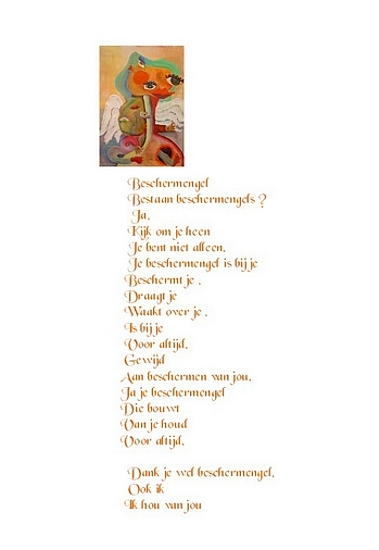 Beschermengel
Bestaan beschermengels ?
Ja,
Kijk om je heen
Je bent niet alleen,
Je beschermengel is bij je
Beschermt je ,
Draagt je
Waakt over je ,
Is bij je
Voor altijd,
Gewijd
Aan beschermen van jou,
Ja je beschermengel
Die bouwt
Van je houd
Voor altijd,
Dank je wel beschermengel,
Ook ik
Ik hou van jou